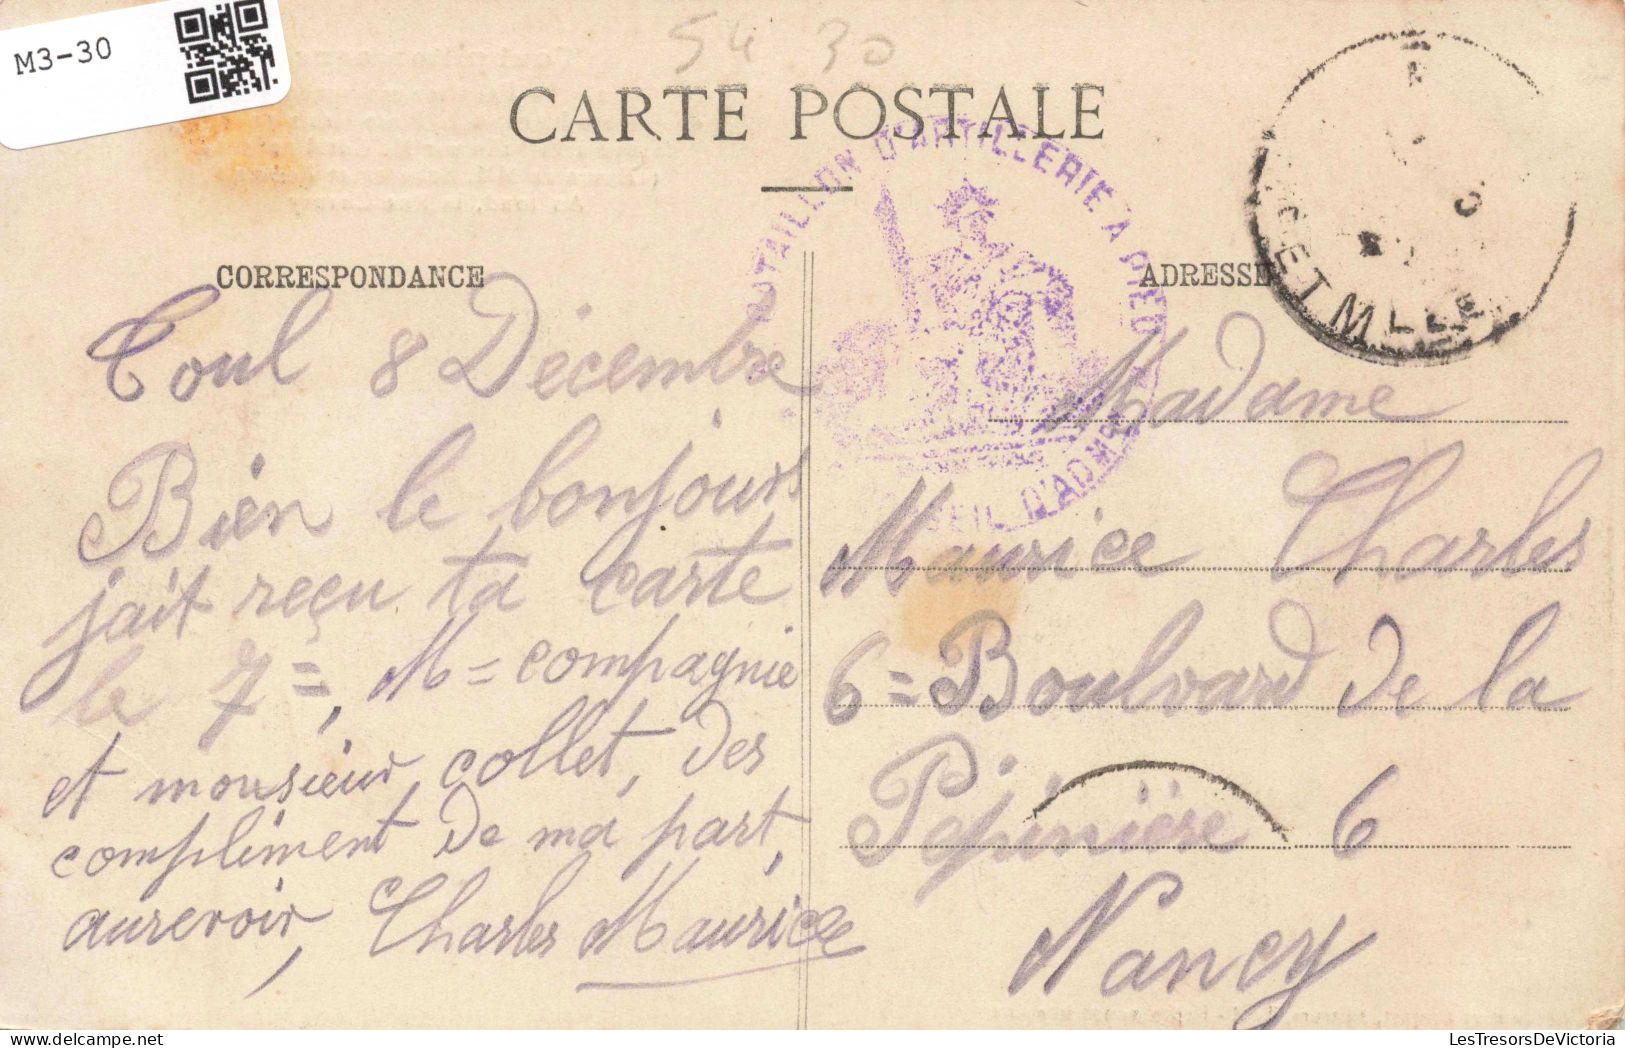 M3-30
54 30
CARTE POSTALE
BATAILLON D'ARTILLERIE À PIED
CONSEIL D'ADMON
CORRESPONDANCE
Toul 8 Décembre
Bien le bonjours
jait reçu ta carte
le 7=, M= compagnie
et monsieur, collet, des
compliment de ma part,
aurevoir, Charles Maurice
ADRESSE
ET MLLE
Madame
Maurice Charles
6= Boulvard de la
Pépinière 6
Nancy
LesTresorsDeVictoria